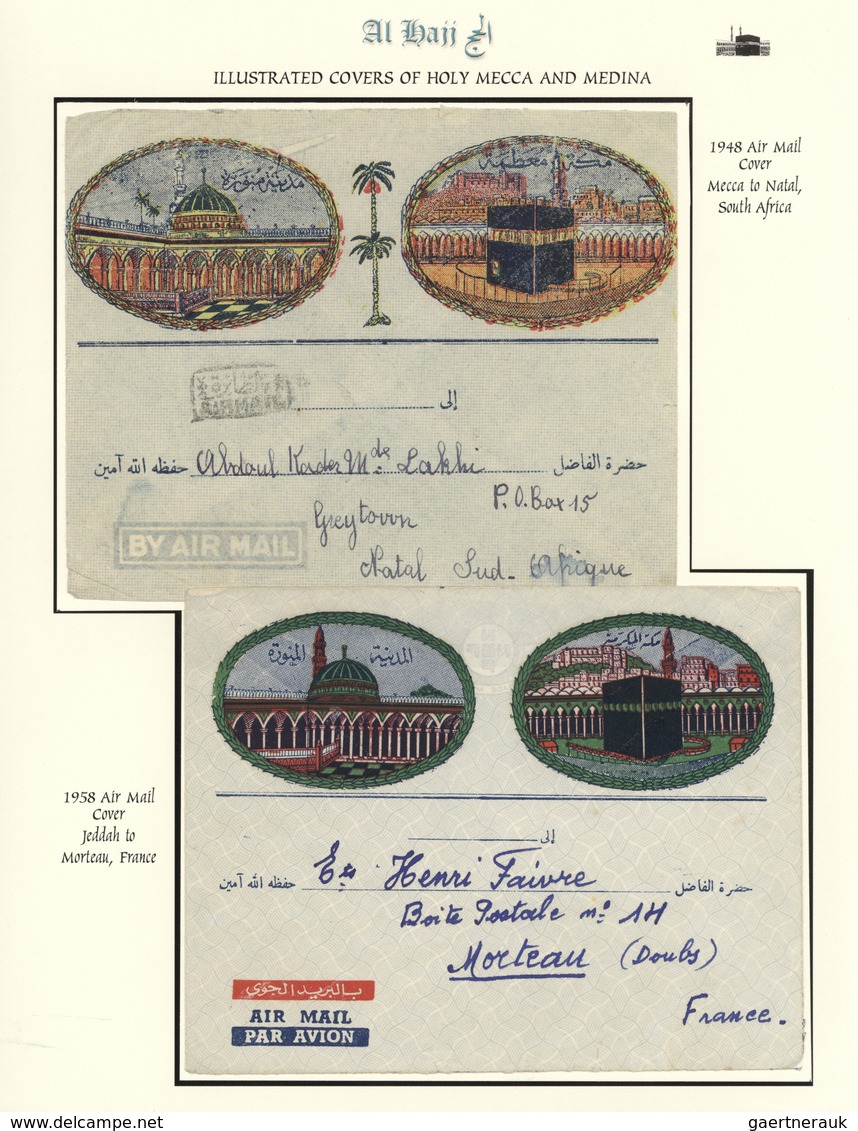 Al Hajj الحج
ILLUSTRATED COVERS OF HOLY MECCA AND MEDINA
1948 Air Mail
Cover
Mecca to Natal,
South Africa
مدينة منورة
مكة معظمة
AIRMAIL
إلى
حضرة الفاضل Abdoul Kader Mde Lakhi حفظه الله آمين
P.O.Box 15
Greytown
Natal Sud-Afrique
BY AIR MAIL
المدينة المنورة
مكة المكرمة
1958 Air Mail
Cover
Jeddah to
Morteau, France
إلى
حضرة الفاضل Ets Henri Faivre حفظه الله آمين
Boite Postale nº 14
Morteau (Doubs)
France.
بالبريد الجوي
AIR MAIL
PAR AVION
delcampe.net
gaertnerauk